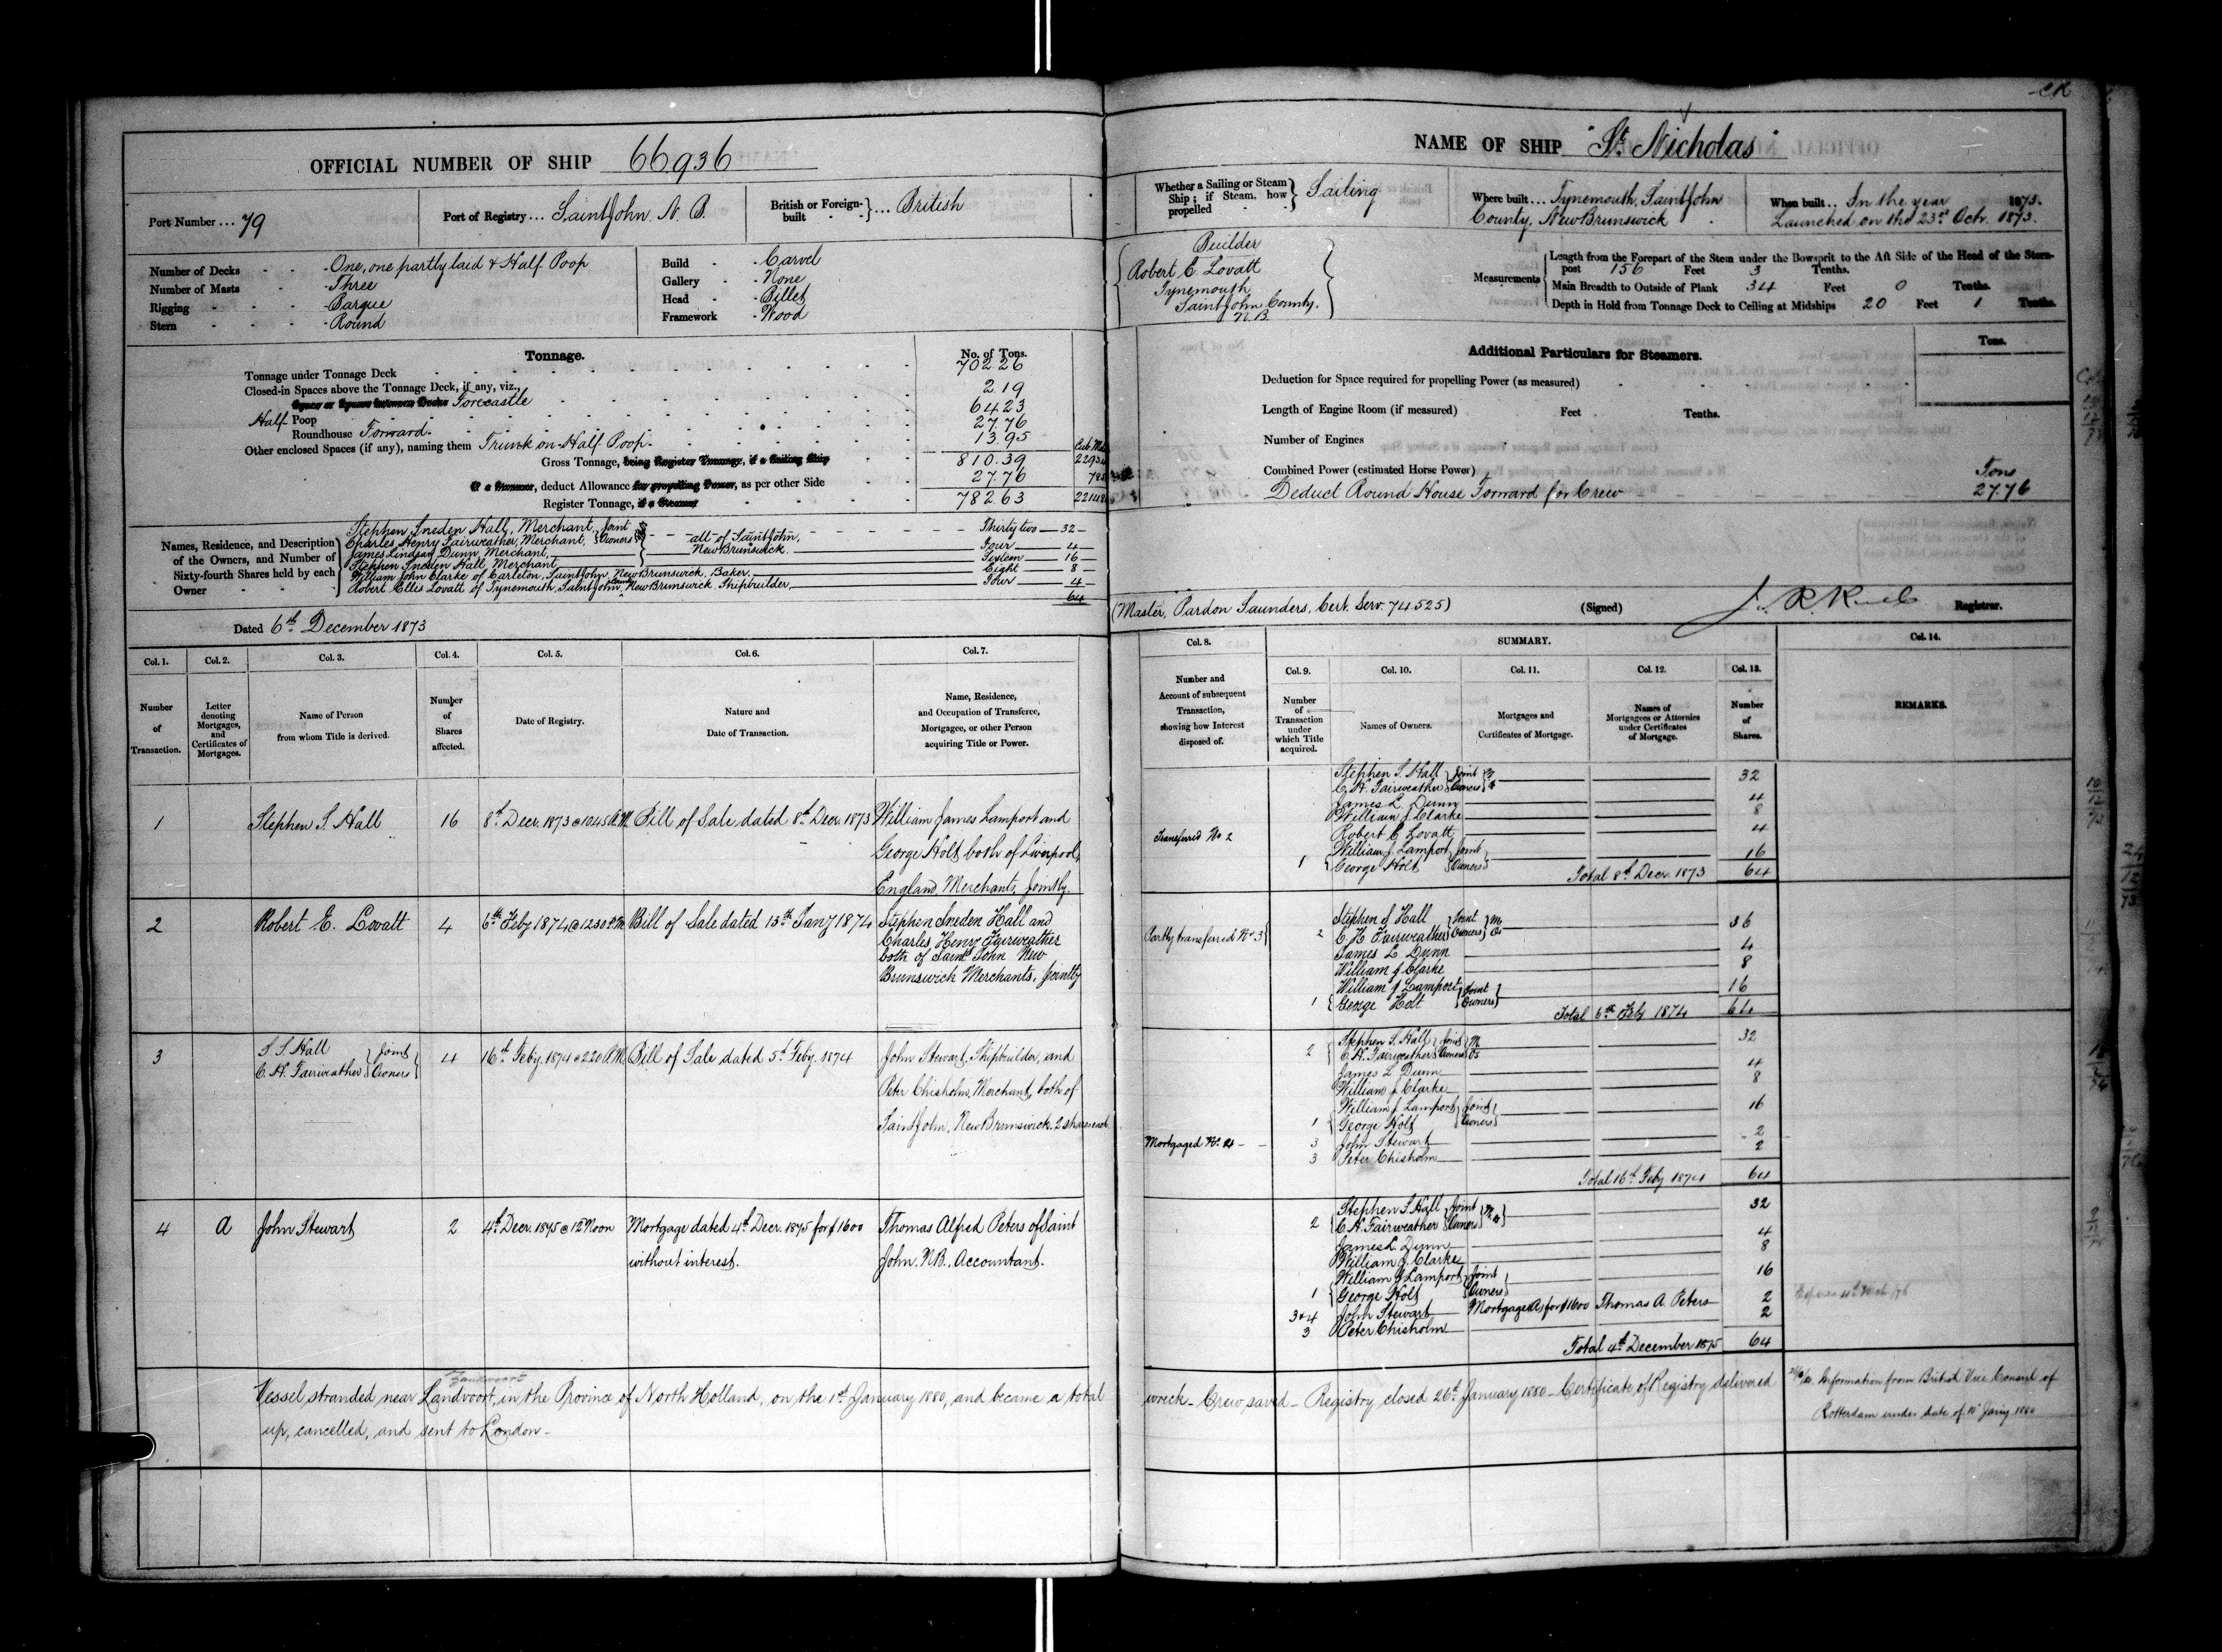 OFFICIAL NUMBER OF SHIP 66,936
Port Number ... 79
Port of Registry ... Saint John, N. B.
British or Foreign-built } ... British
Number of Decks - - One, one partly laid & Half Poop
Number of Masts - - Three
Rigging - - - Barque
Stern - - - Round
Build - - Carvel
Gallery - - None
Head - - Billet
Framework - Wood
Tonnage.
No. of Tons.
Tonnage under Tonnage Deck 702 26
Closed-in Spaces above the Tonnage Deck, if any, viz.,
Space or Spaces between Decks Forecastle 2 19
Half- Poop 64 23
Roundhouse Forward. 27.76
Other enclosed Spaces (if any), naming them Trunk on Half Poop. 13.95
Cub. Met.
Gross Tonnage, being Register Tonnage, if a Sailing Ship 810.39
If a Steamer, deduct Allowance for propelling Power, as per other Side 27.76
Register Tonnage, if a Steamer 782 63
Names, Residence, and Description of the Owners, and Number of Sixty-fourth Shares held by each Owner
Stephen Sneden Hall, Merchant, } Joint Owners } Thirty two — 32 —
Charles Henry Fairweather, Merchant, } all of Saint John, New Brunswick.
James Lindsay Dunn, Merchant, Four — 4 —
Stephen Sneden Hall, Merchant Sixteen — 16 —
William John Clarke of Carleton, Saint John, New Brunswick. Baker. Eight — 8 —
Robert Ellis Lovatt of Tynemouth, Saint John County New Brunswick. Shipbuilder, Four — 4 —
64
Dated 6th December 1873
Col. 1. Col. 2. Col. 3. Col. 4. Col. 5. Col. 6. Col. 7.
Number of Transaction.
Letter denoting Mortgages, and Certificates of Mortgages.
Name of Person from whom Title is derived.
Number of Shares affected.
Date of Registry.
Nature and Date of Transaction.
Name, Residence, and Occupation of Transferee, Mortgagee, or other Person acquiring Title or Power.
1 Stephen S. Hall 16 8th Decr. 1873 @ 10 45 A.M. Bill of Sale dated 8th Decr. 1873 William James Lamport and
George Holt both of Liverpool,
England, Merchants, Jointly.
2 Robert E. Lovatt 4 6th Feby 1874 @ 12 30 P.M. Bill of Sale dated 13th Jany 1874 Stephen Sneden Hall and
Charles Henry Fairweather
both of Saint John New
Brunswick Merchants, jointly
3 S S Hall
C. H. Fairweather } Joint Owners } 4 16th Feby. 1874 @ 2 20 P.M. Bill of Sale dated 5th Feby. 1874 John Stewart, Shipbuilder, and
Peter Chisholm, Merchant, both of
Saint John, New Brunswick. 2 shares each
4 A John Stewart 2 4th Decr. 1875 @ 12 Noon Mortgage dated 4th Decr. 1875 for $1600
without interest.
Thomas Alfred Peters of Saint
John. N.B., Accountant.
Zandvoort
Vessel stranded near Landvoort, in the Province of North Holland, on the 1st January 1880, and became a total
up, cancelled, and sent to London -
NAME OF SHIP "St. Nicholas"
Whether a Sailing or Steam Ship; if Steam, how propelled } Sailing
Where built ... Tynemouth, Saint John
County, New Brunswick
When built ... In the year 1873.
Launched on the 23rd Octr. 1873.
Builder
Robert E Lovatt
Tynemouth
Saint John County.
N. B.
Measurements
Length from the Forepart of the Stem under the Bowsprit to the Aft Side of the Head of the Stern-post 156 Feet 3 Tenths.
Main Breadth to Outside of Plank 34 Feet 0 Tenths.
Depth in Hold from Tonnage Deck to Ceiling at Midships 20 Feet 1 Tenths.
Additional Particulars for Steamers.
Tons.
Deduction for Space required for propelling Power (as measured)
Length of Engine Room (if measured) Feet Tenths.
Number of Engines
Combined Power (estimated Horse Power)
Tons
Deduct Round House Forward for Crew 27.76
(Master, Pardon Saunders, Cert. Serv. 74.525)
(Signed) Registrar.
Col. 8. SUMMARY. Col. 14.
Col. 9. Col. 10. Col. 11. Col. 12. Col. 13.
Number and Account of subsequent Transaction, showing how Interest disposed of.
Number of Transaction under which Title acquired.
Names of Owners.
Mortgages and Certificates of Mortgage.
Names of Mortgagees or Attornies under Certificates of Mortgage.
Number of Shares.
REMARKS.
Stephen S. Hall } Joint
C. H. Fairweather } Owners 32
James L. Dunn 4
William J. Clarke 8
Transferred No 2 Robert E Lovatt 4
William J. Lamport } Joint
1 George Holt } Owners 16
Total 8th Decr. 1873 64
Stephen S Hall } Joint
Partly transferred No 3 2 C. H Fairweather } Owners 36
James L Dunn 4
William J Clarke 8
William J Lamport } Joint
1 George Holt } Owners 16
Total 6th Feby 1874 64
2 Stephen S. Hall } Joint
C. H. Fairweather } Owners 32
James L Dunn 4
William J. Clarke 8
William J Lamport } Joint
1 George Holt } Owners 16
Mortgaged No. 4 3 John Stewart 2
3 Peter Chisholm 2
Total 16th Feby 1874 64
2 Stephen S Hall } Joint
C. H. Fairweather } Owners 32
James L. Dunn 4
William J. Clarke 8
William J Lamport } Joint
1 George Holt } Owners 16
3 & 4 John Stewart Mortgage A for $1600 Thomas A. Peters 2
3 Peter Chisholm 2
Total 4th December 1875 64
wreck - Crew saved - Registry closed 26th January 1880 - Certificate of Registry delivered
Information from British Vice Consul of
Rotterdam under date of 10 Jany 1880